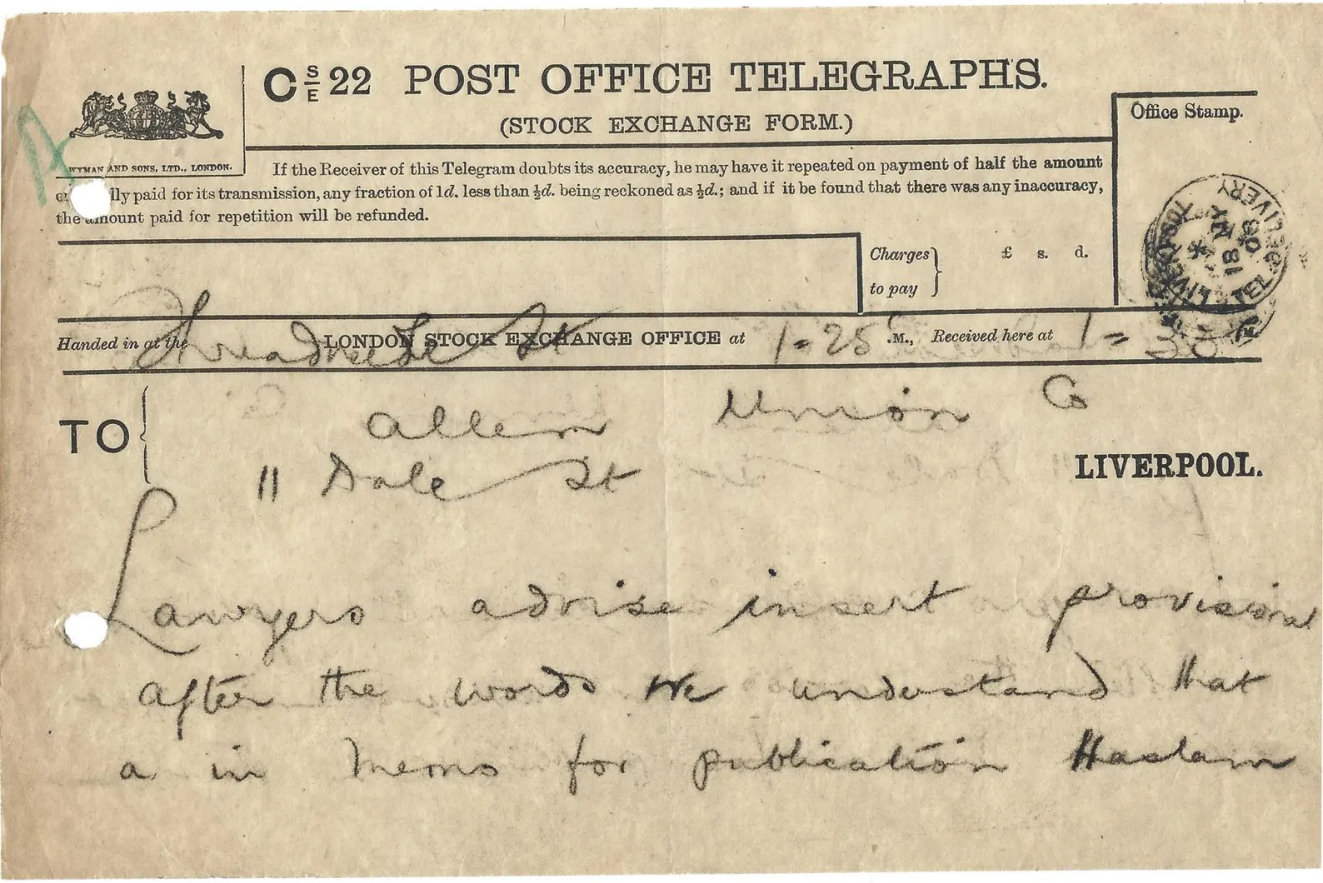 C S/E 22 POST OFFICE TELEGRAPHS.
(STOCK EXCHANGE FORM.)
Office Stamp.
WYMAN AND SONS, LTD., LONDON.
If the Receiver of this Telegram doubts its accuracy, he may have it repeated on payment of half the amount
lly paid for its transmission, any fraction of 1d. less than ½d. being reckoned as ½d.; and if it be found that there was any inaccuracy,
the amount paid for repetition will be refunded.
Charges to pay } £ s. d.
LIVERPOOL
18 MY
08
TEL. DELIVERY
Handed in at the LONDON STOCK EXCHANGE OFFICE at 1-25 .M., Received here at 1=
Threadneedle St
TO { Allem Union Co
11 Dale St LIVERPOOL.
Lawyers advise insert provisional
after the words we understand that
a in memo for publication Haslam